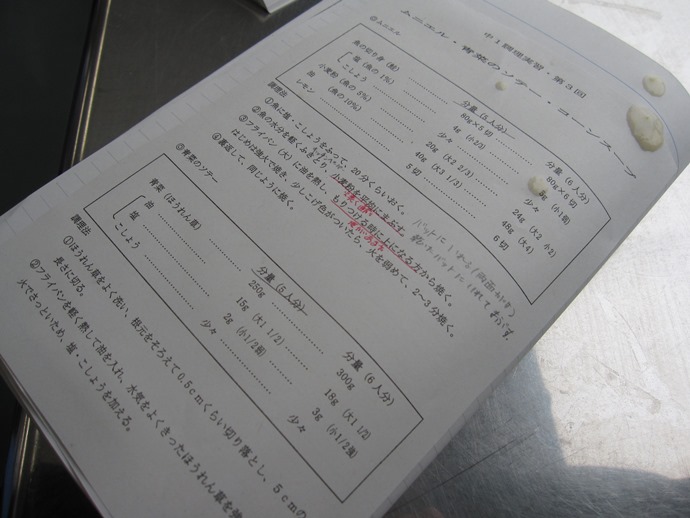 中1調理実習・第3回
ムニエル・青菜のソテー・コーンスープ
①ムニエル
分量(5人分) 分量(6人分)
魚の切り身(鮭) 80g×5切 80g×6切
塩(魚の1%) 4g(小2/3)
こしょう 少々 少々
小麦粉(魚の5%) 20g(大2 1/3) 24g(大2 小2)
油(魚の10%) 40g(大3 1/3) 48g(大4)
レモン 5切 6切
調理法
①魚に塩・こしょうをふって、20分くらいおく。
②魚の水分を軽くふきとり、小麦粉を平均にまぶす。
バットに入れる(両面かわす)
③フライパン(大)に油を熱し、もりつける時に上になる方から焼く。
はじめは強火で焼き、少しこげ色がついたら、火を弱めて、2~3分焼く。
④裏返して、同じように焼く。
②青菜のソテー
分量(5人分) 分量(6人分)
青菜(ほうれん草) 250g 300g
油 15g(大1 1/2) 18g(大1 1/2)
塩 2g(小1/2弱) 3g(小1/2強)
こしょう 少々 少々
調理法
①ほうれん草をよく洗い、根元をそろえて0.5cmくらい切り落とし、5cmの
長さに切る。
②フライパンを軽く熱して油を入れ、水気をよくきったほうれん草を強
火でさっといため、塩・こしょうを加える。